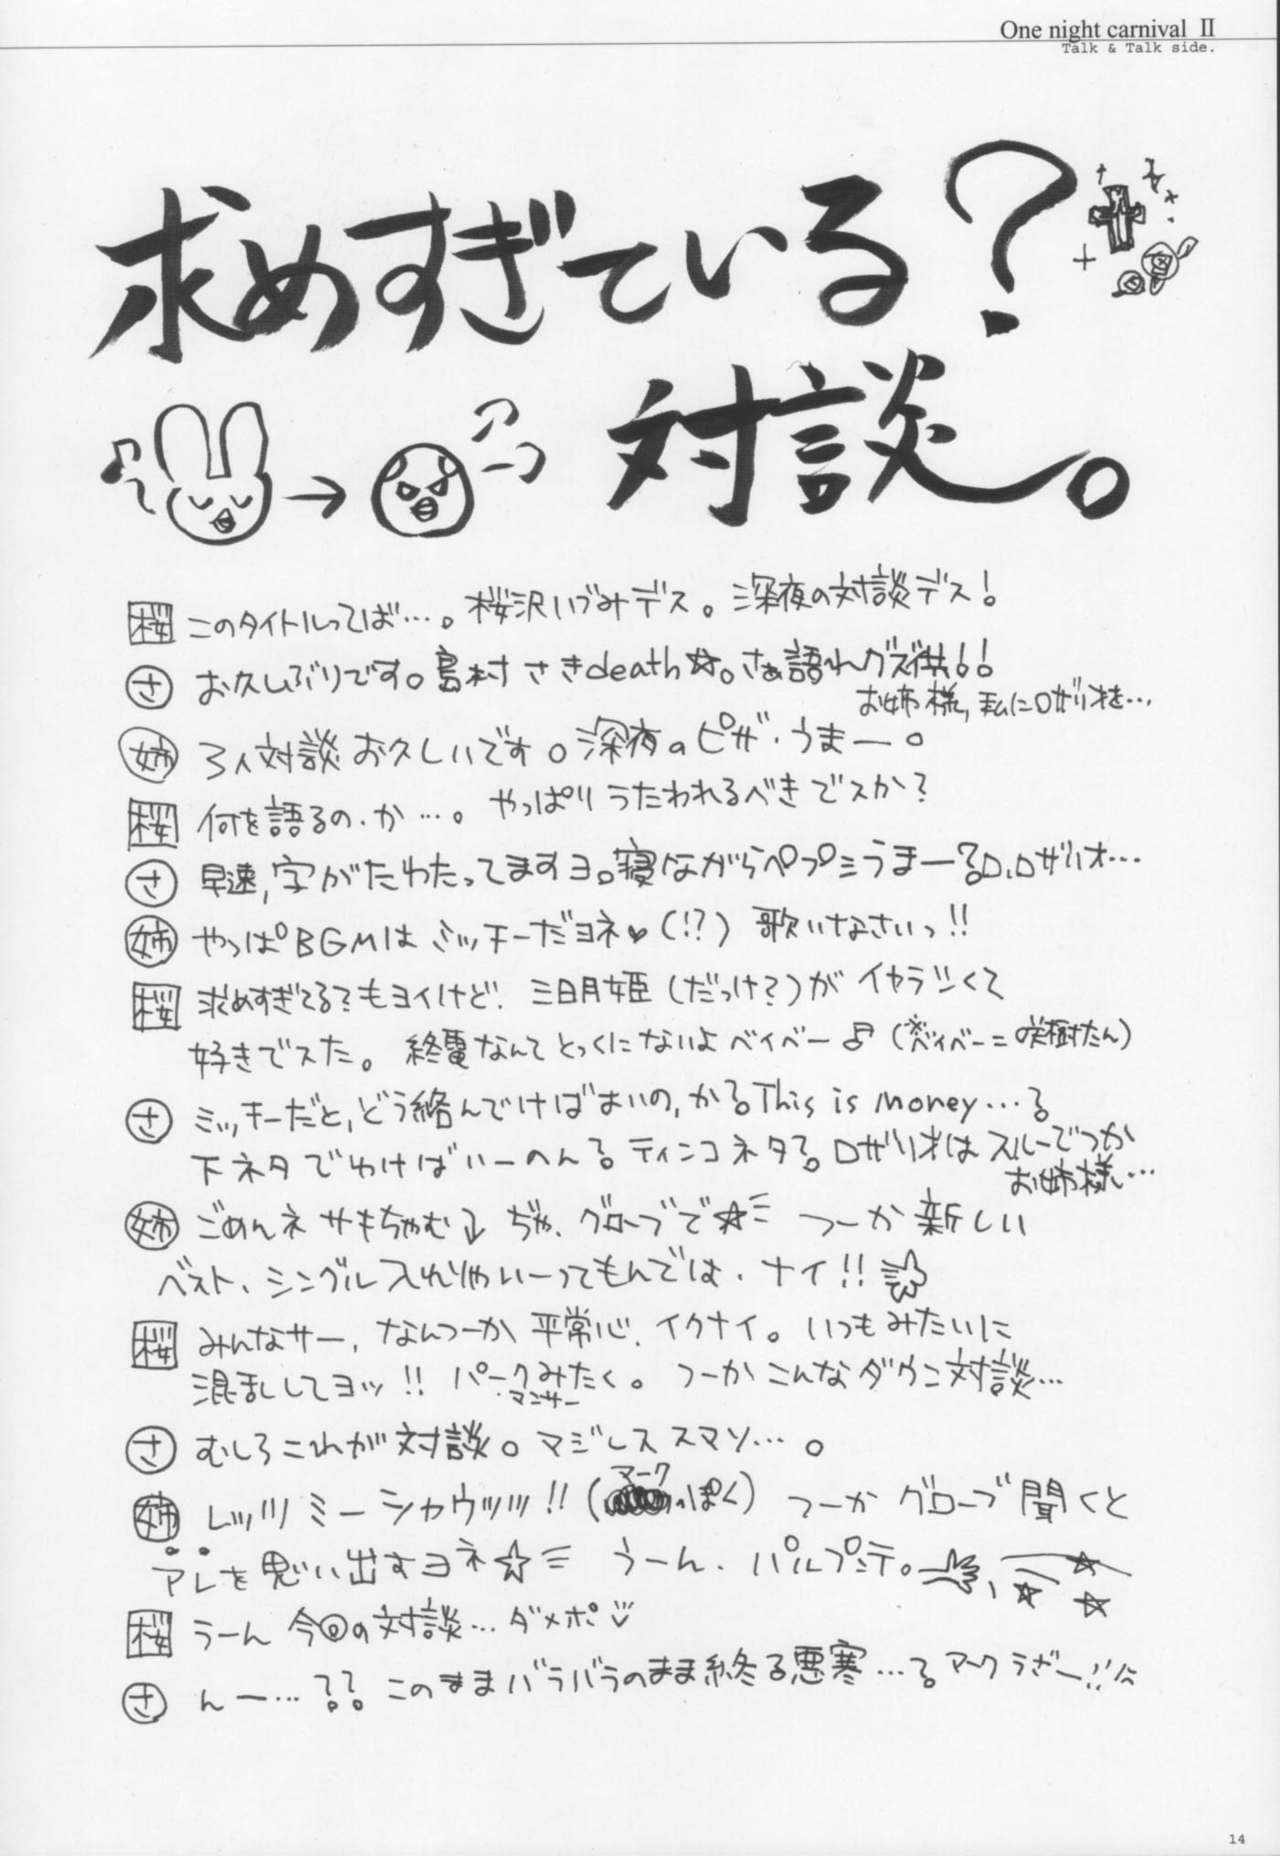 One night carnival Ⅱ
Talk & Talk side.
求めすぎている?
対談。
桜 このタイトルってば…。桜沢いづみデス。深夜の対談デス!
さ お久しぶりです。島村さきdeath☆。さぁ語れグズ共!!
お姉様,私にロザリオを…
姉 3人対談お久しいです。深夜のピザ、うまー。
桜 何を語るの、か…。やっぱりうたわれるべきでスか?
さ 早速,字がたわたってますヨ。寝ながらペプミうまー?ロ,ロザリオ…
姉 やっぱBGMはミッキーだヨネ♥(!?) 歌いなさいっ!!
桜 求めすぎてる?もヨイけど、三日月姫(だっけ?)がイヤラシくて
好きでスた。終電なんてとっくにないよベイベー♪(※ベイベー=咲樹たん)
さ ミッキーだと,どう絡んでけばよいの,かる。This is money…る
下ネタでいければいーのんる。ティンコネタる。ロザリオはスルーでつか
お姉様…
姉 ごめんネ サキちゃむ↓ ぢゃ、グローブで☆ つーか新しい
ベスト、シングル入れりゃいーってもんでは、ナイ!!
桜 みんなサー、なんつーか平常心、イクナイ。いつもみたいに
混乱してヨッ!! パークみたく。つーかこんなダウン対談…
マンサー
さ むしろこれが対談。マジレス スマソ…。
姉 レッツ ミー シャウッッ!!(マークっぽく) つーか グローブ聞くと
アレを思い出すヨネ☆ うーん、パルプンテ。
桜 うーん 今回の対談… ダメポ
さ んー…??このままバラバラのまま終る悪寒…る マークうざー!!
14